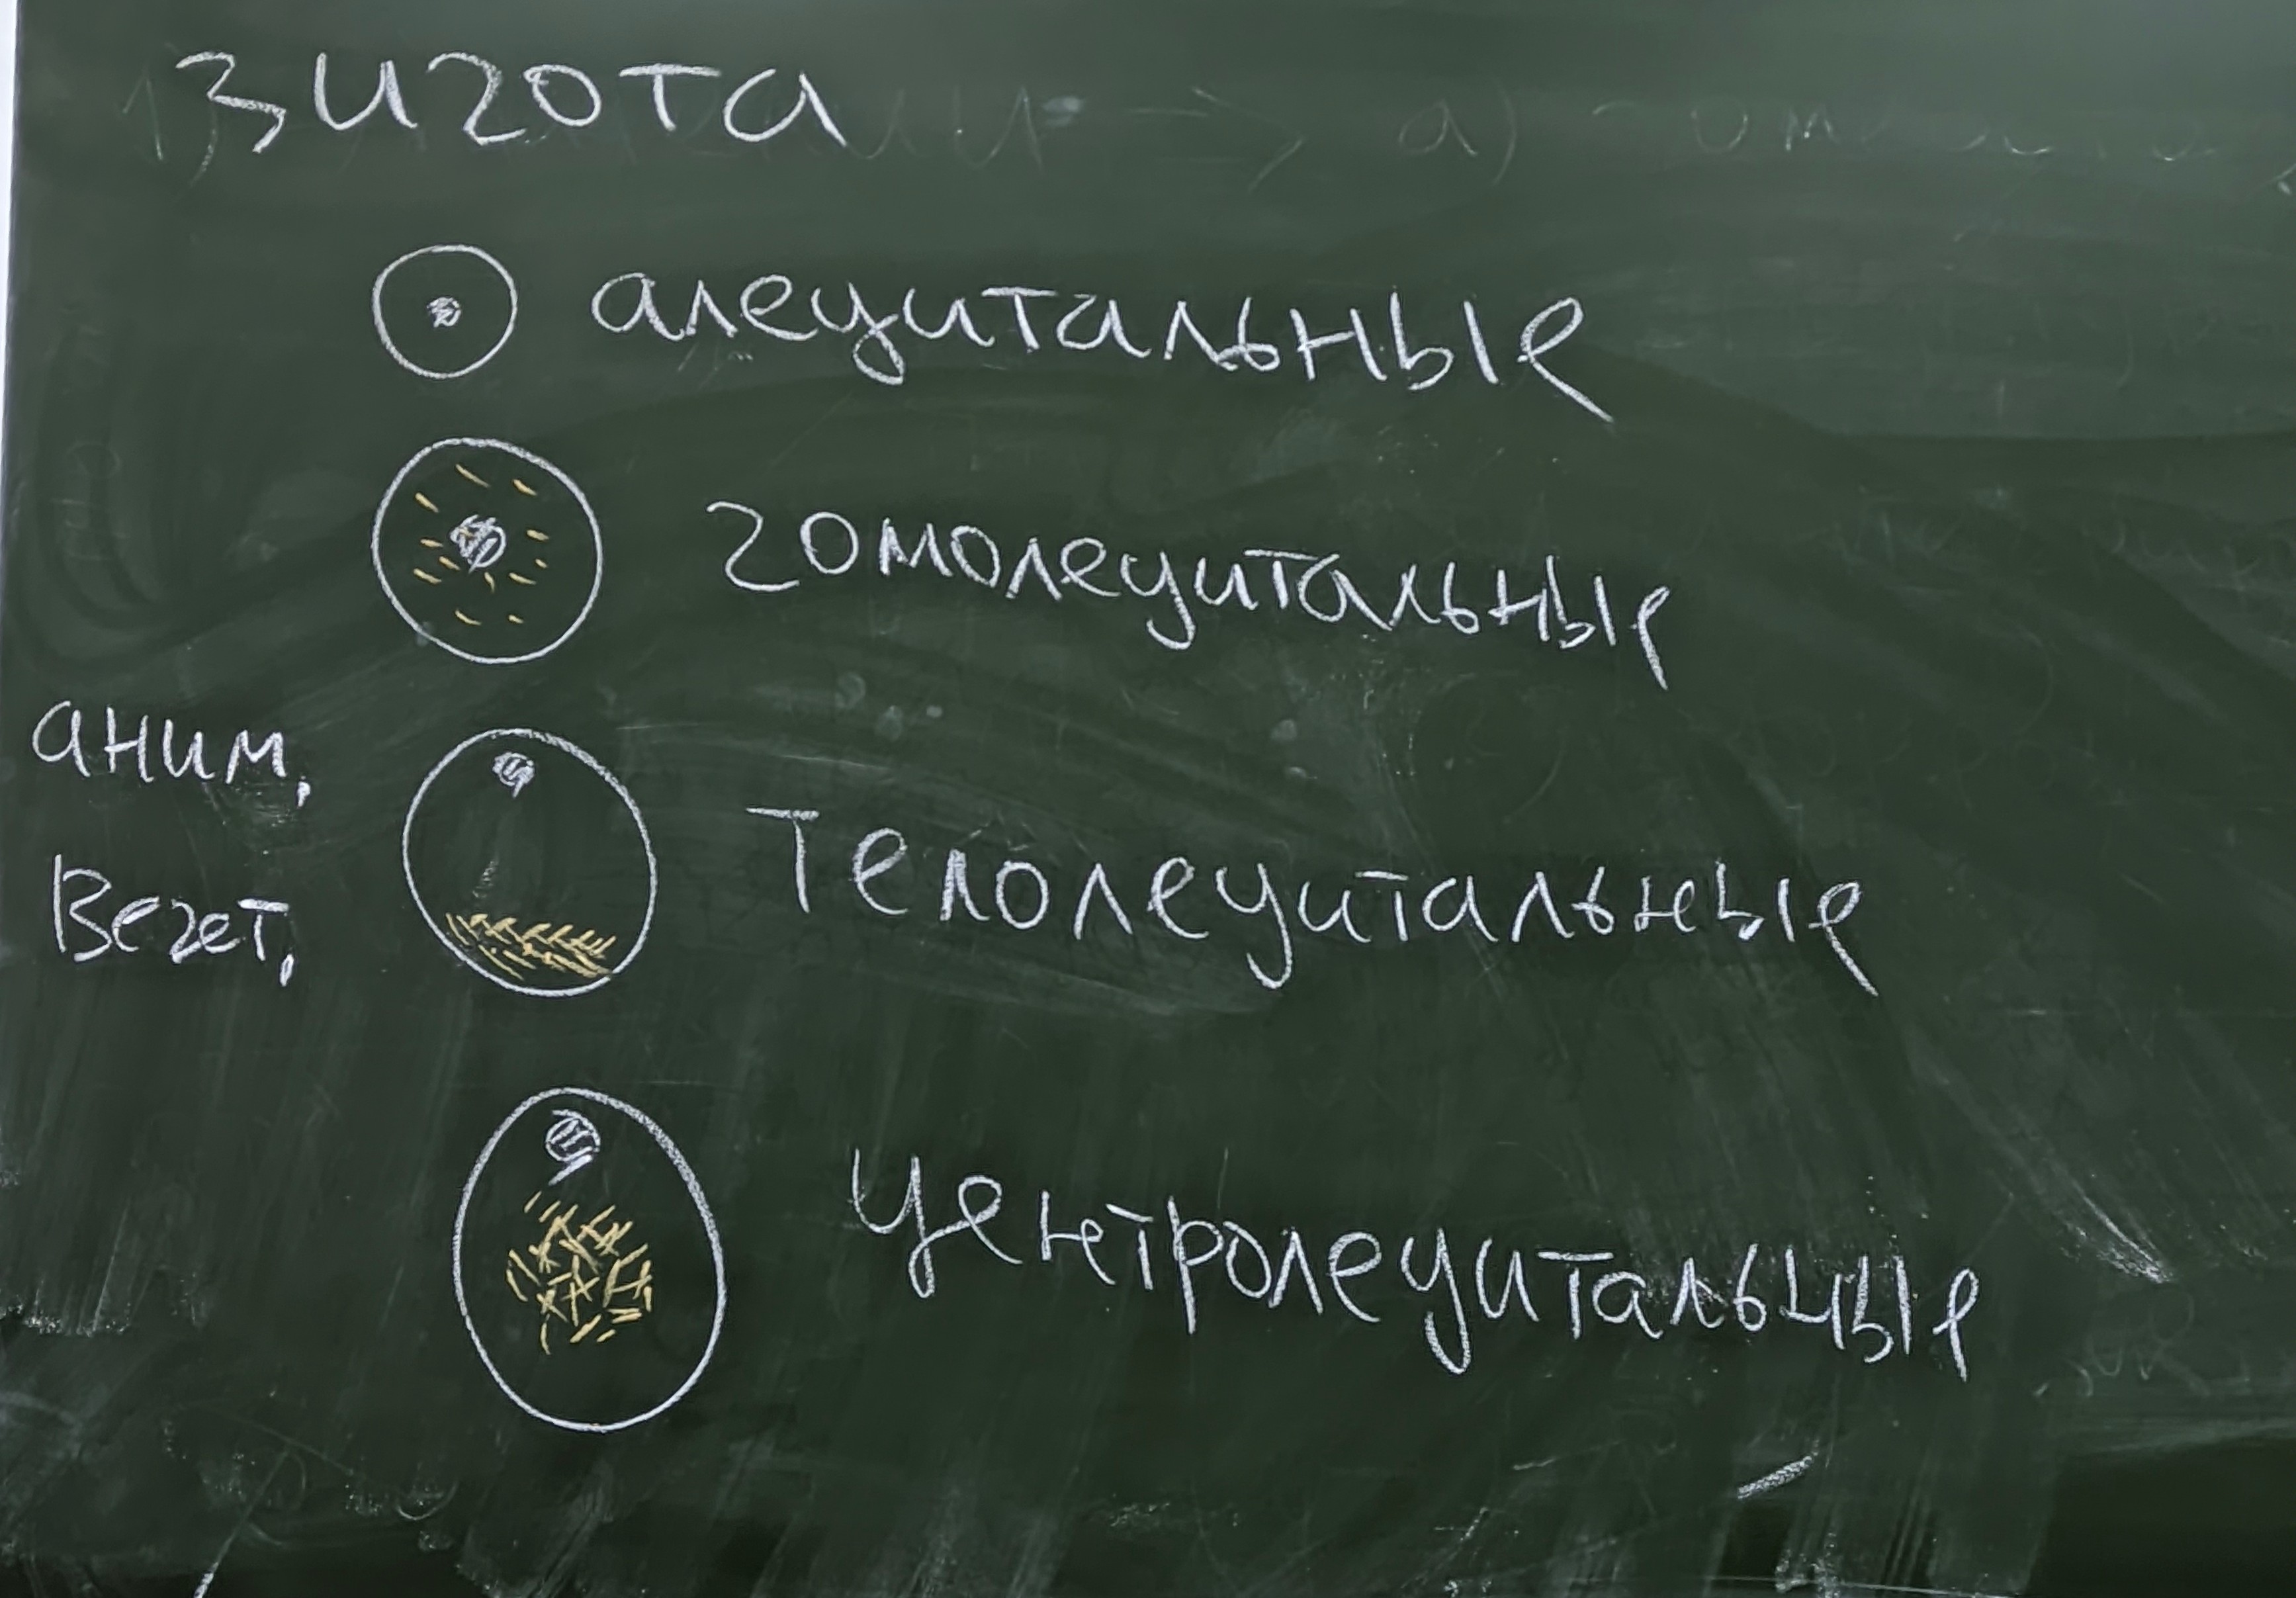 зигота
алецитальные
гомолецитальные
аним.
Телолецитальные
Вегет.
центролецитальные